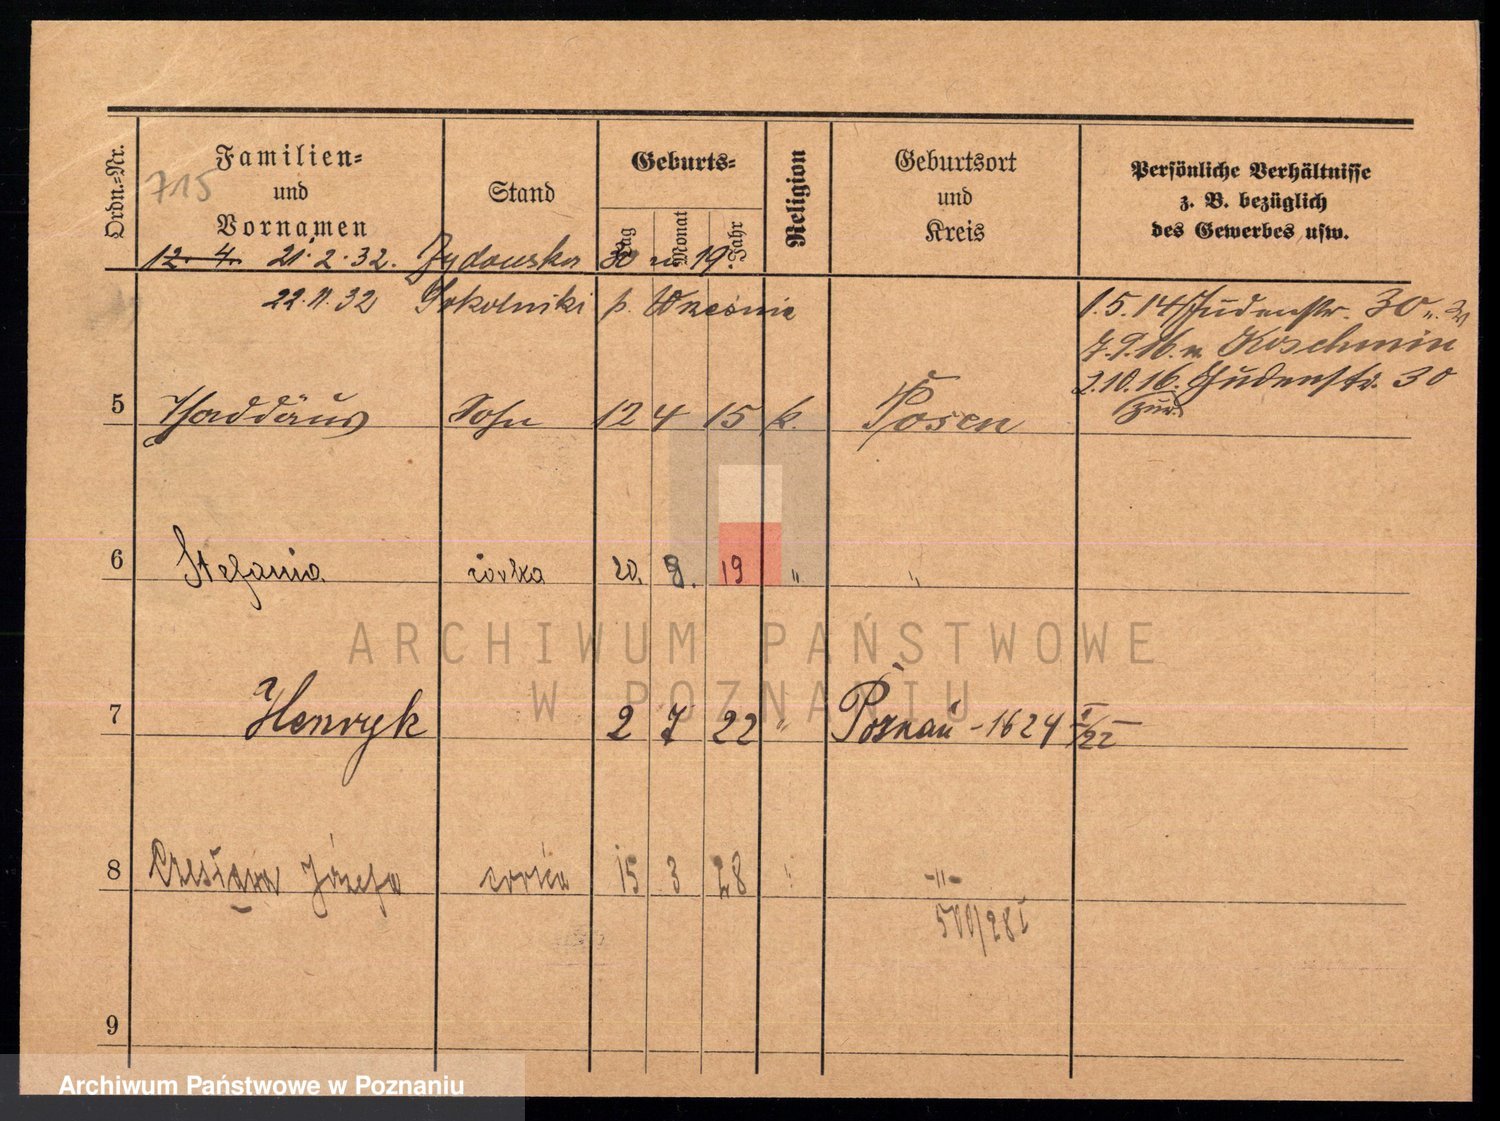 Ordn.-Nr.
Familien-
und
Vornamen
715
Stand
Geburts-
Tag
Monat
Jahr
Religion
Geburtsort
und
Kreis
Persönliche Verhältnisse
z. B. bezüglich
des Gewerbes usw.
12. 4. 21.2.32. Żydowska 30 19.
22.11.32 Sokolniki p. Września
1.5.14 Judenstr. 30
7.9.16. n. Koschmin
2.10.16. Judenstr. 30
zur.
5 Thaddäus Sohn 12 4 15 k. Posen
6 Stefania córka 20. 8. 19 " "
7 Henryk 2 7 22 " Poznań - 1624 I/22
8 Czesława Józefa córka 15 3 28 " -"-
500/28 I
9
ARCHIWUM PAŃSTWOWE
W POZNANIU
Archiwum Państwowe w Poznaniu